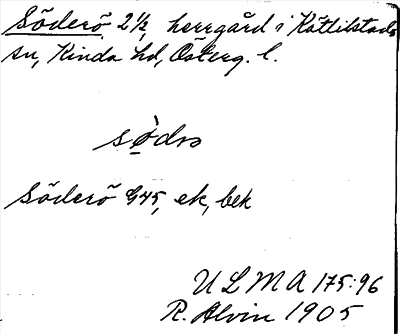 Söderö 2½, herrgård i Kättilstads
sn, Kinda hd, Österg. l.
Söderö G45, ek, bek
ULMA 175:96
R. Alvin 1905